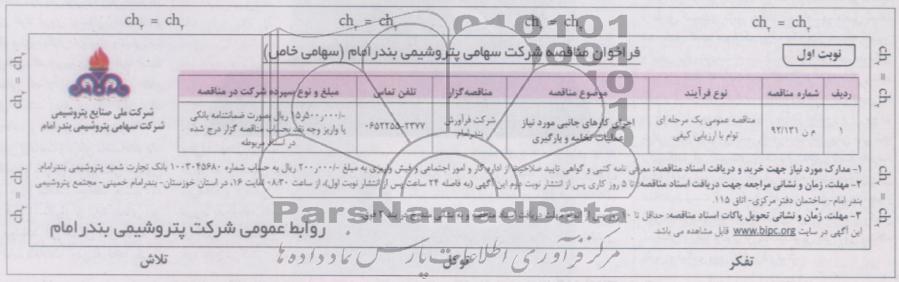 ch₂ = ch₂ ch₂ = ch₂ ch₂ = ch₂ ch₂ = ch₂
نوبت اول
فراخوان مناقصه شرکت سهامی پتروشیمی بندر امام (سهامی خاص)
شرکت ملی صنایع پتروشیمی
شرکت سهامی پتروشیمی بندر امام
ردیف شماره مناقصه نوع فرآیند موضوع مناقصه مناقصه‌گزار تلفن تماس مبلغ و نوع سپرده شرکت در مناقصه
۱ م ن ۹۲/۱۳۱ مناقصه عمومی یک مرحله ای توام با ارزیابی کیفی اجرای کارهای جانبی مورد نیاز عملیات تخلیه و بارگیری شرکت فرآورش بندرامام ۰۶۵۲۲۵۵-۲۳۷۷ ریال بصورت ضمانتنامه بانکی یا واریز وجه نقد بحساب مناقصه گزار درج شده در اسناد مربوطه
۱- مدارک مورد نیاز جهت خرید و دریافت اسناد مناقصه: معرفی نامه کتبی و گواهی تایید صلاحیت از اداره کار و امور اجتماعی و فیش واریزی به مبلغ ۲۰۰٫۰۰۰ ریال به حساب شماره ۱۰۰۳۰۴۵۶۸۰ بانک تجارت شعبه پتروشیمی بندرامام.
۲- مهلت، زمان و نشانی مراجعه جهت دریافت اسناد مناقصه: تا ۵ روز کاری پس از انتشار نوبت دوم این آگهی (به فاصله ۲۴ ساعت پس از انتشار نوبت اول)، از ساعت ۰۸:۳۰ لغایت ۱۶، در استان خوزستان- بندرامام خمینی- مجتمع پتروشیمی
بندر امام- ساختمان دفتر مرکزی- اتاق ۱۱۵.
۳- مهلت، زمان و نشانی تحویل پاکات اسناد مناقصه: حداقل تا ۱۰ روز پس از اتمام مهلت دریافت اسناد مناقصه و به نشانی مندرج در بند ۲ فوق
این آگهی در سایت www.bipc.org قابل مشاهده می باشد.
روابط عمومی شرکت پتروشیمی بندر امام
ParsNamadData
مرکز فرآوری اطلاعات پارس نماد داده ها
تفکر توکل تلاش